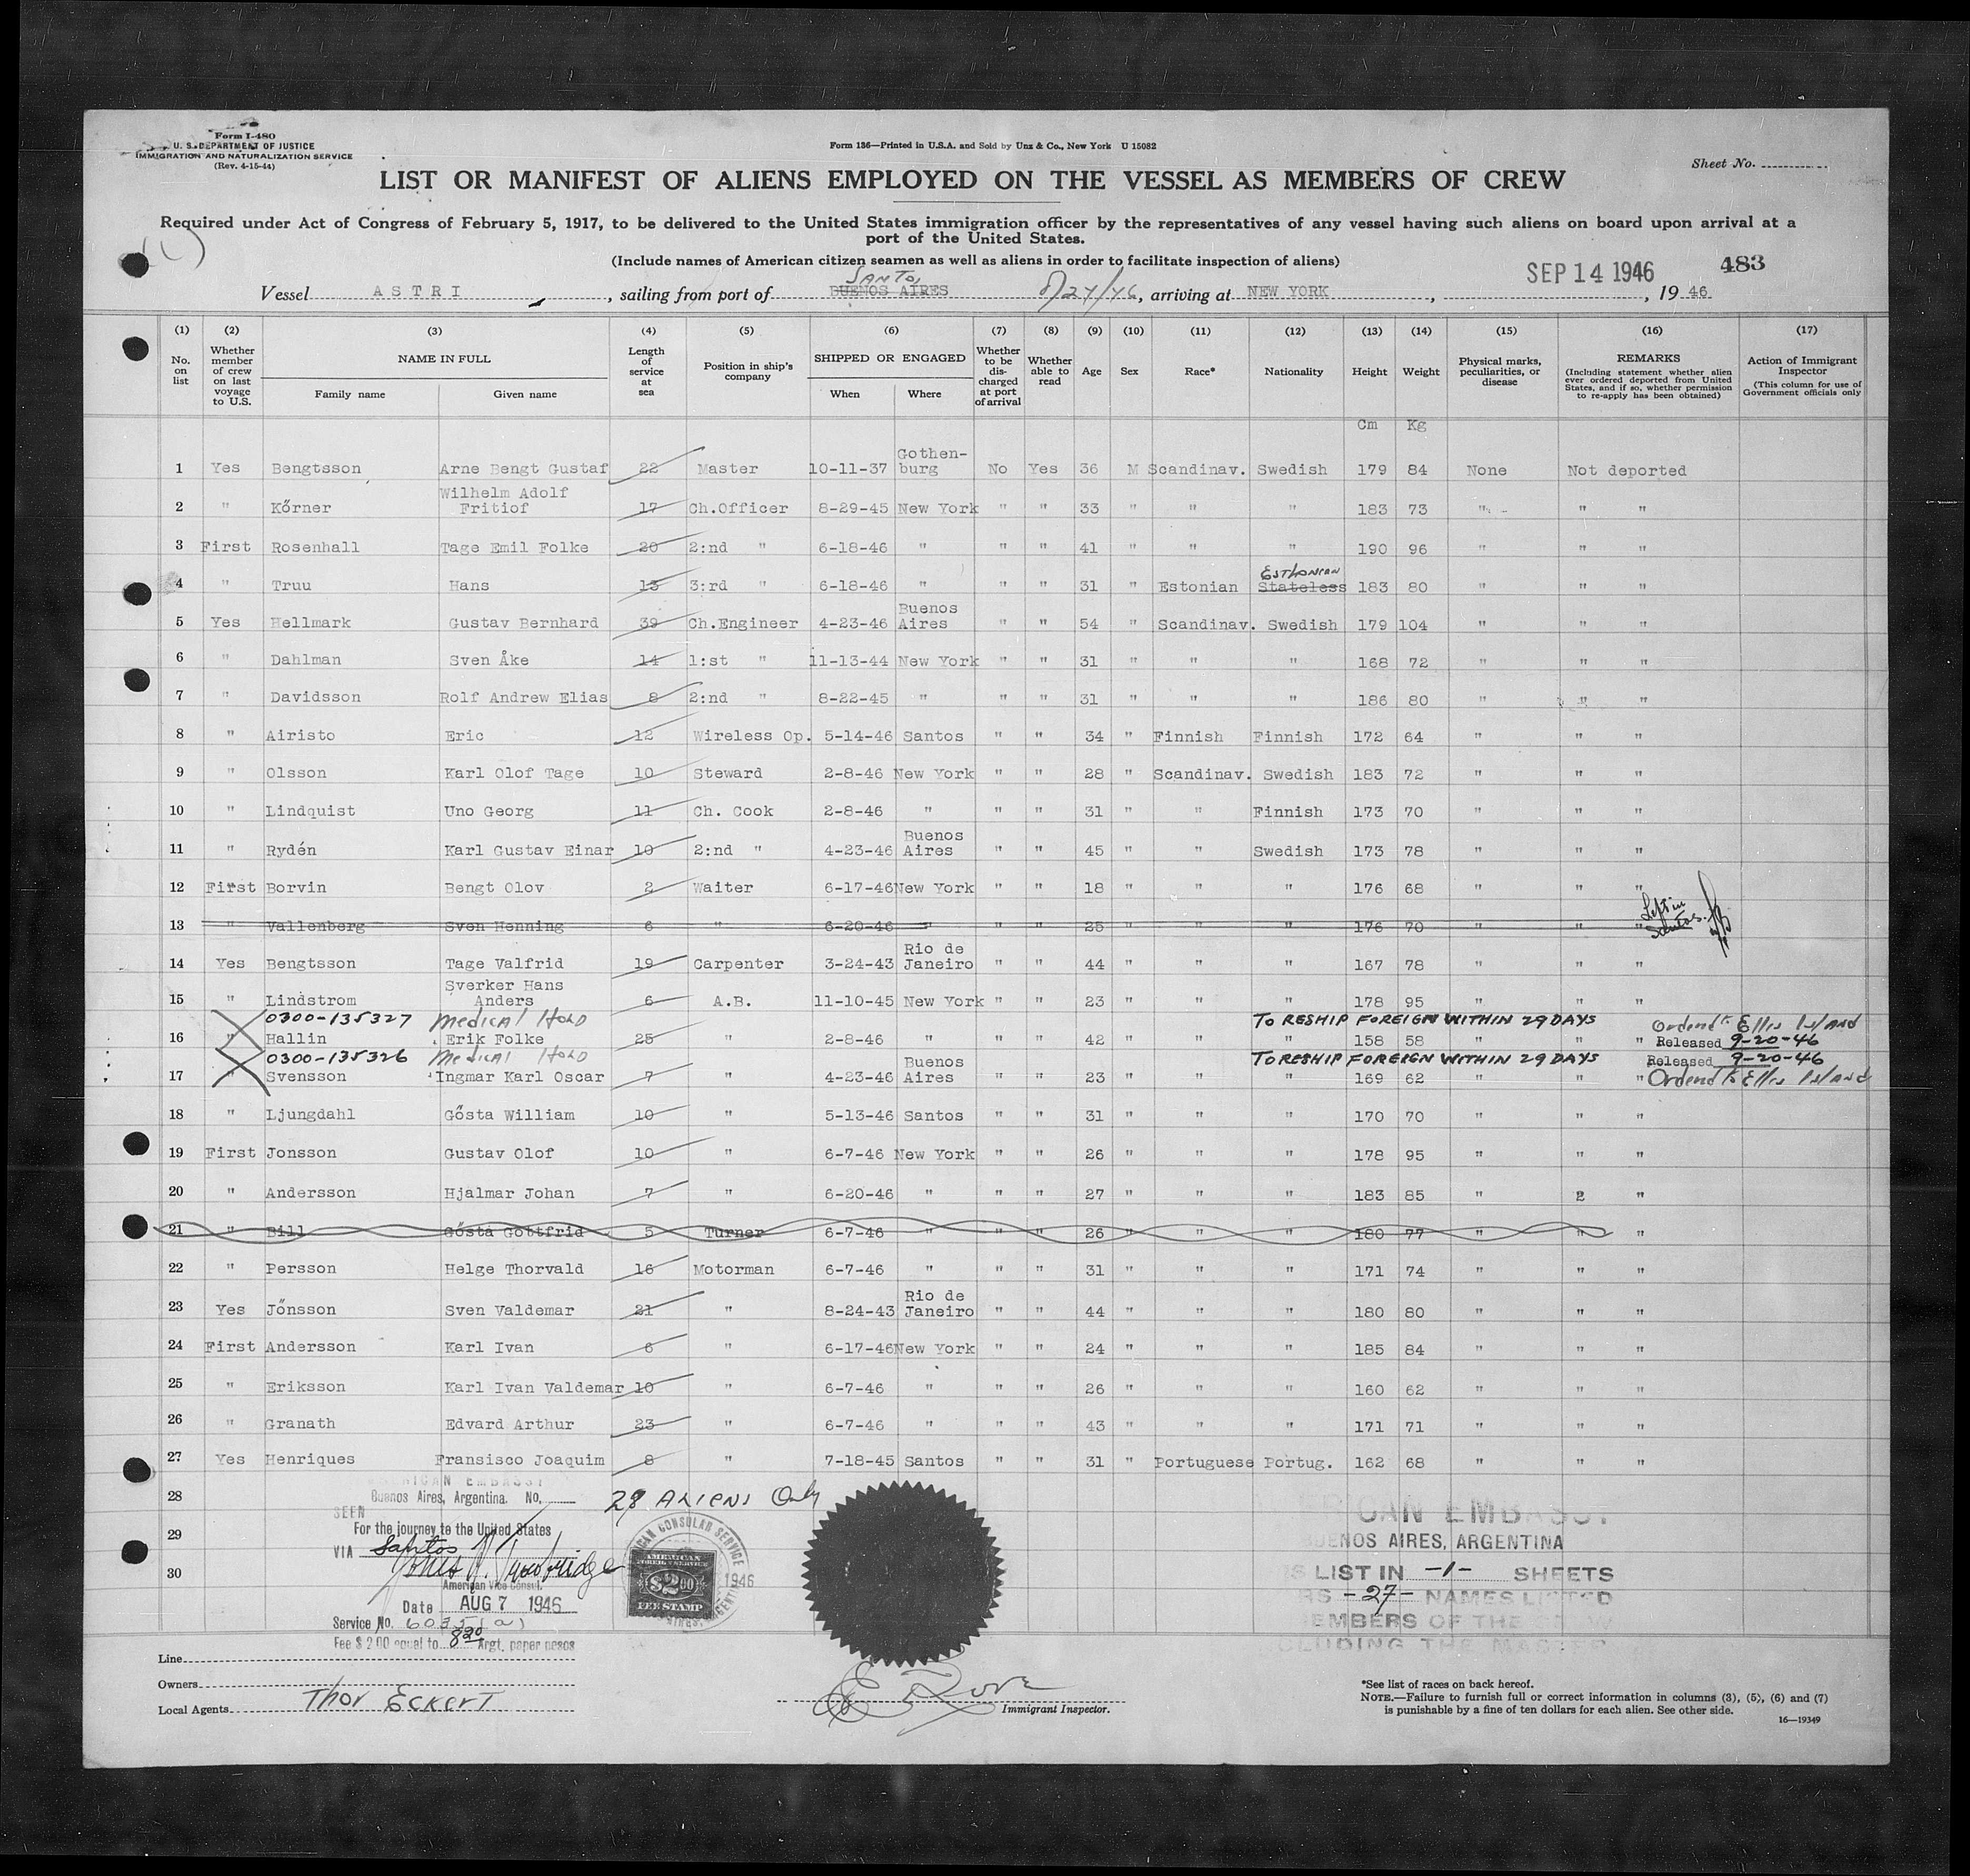 Form I-480
U. S. DEPARTMENT OF JUSTICE
IMMIGRATION AND NATURALIZATION SERVICE
(Rev. 4-15-44)
Form 136—Printed in U.S.A. and Sold by Unz & Co., New York U 15082
Sheet No.
LIST OR MANIFEST OF ALIENS EMPLOYED ON THE VESSEL AS MEMBERS OF CREW
Required under Act of Congress of February 5, 1917, to be delivered to the United States immigration officer by the representatives of any vessel having such aliens on board upon arrival at a
port of the United States.
(Include names of American citizen seamen as well as aliens in order to facilitate inspection of aliens)
SEP 14 1946 483
SANTOS
Vessel ASTRI, sailing from port of BUENOS AIRES 8/24/46, arriving at NEW YORK, 1946
(1) (2) (3) (4) (5) (6) (7) (8) (9) (10) (11) (12) (13) (14) (15) (16) (17)
No. on list
Whether member of crew on last voyage to U.S.
NAME IN FULL
Family name Given name
Length of service at sea
Position in ship's company
SHIPPED OR ENGAGED
When Where
Whether to be discharged at port of arrival
Whether able to read
Age
Sex
Race*
Nationality
Height
Weight
Physical marks, peculiarities, or disease
REMARKS
(Including statement whether alien ever ordered deported from United States, and if so, whether permission to re-apply has been obtained)
Action of Immigrant Inspector
(This column for use of Government officials only
Cm Kg
1 Yes Bengtsson Arne Bengt Gustaf 22 Master 10-11-37 Gothenburg No Yes 36 M Scandinav. Swedish 179 84 None Not deported
2 " Kőrner Wilhelm Adolf Fritiof 17 Ch.Officer 8-29-45 New York " " 33 " " " 183 73 " " "
3 First Rosenhall Tage Emil Folke 20 2:nd " 6-18-46 " " " 41 " " " 190 96 " " "
4 " Truu Hans 13 3:rd " 6-18-46 " " " 31 " Estonian Stateless ESTHONIAN 183 80 " " "
5 Yes Hellmark Gustav Bernhard 39 Ch.Engineer 4-23-46 Buenos Aires " " 54 " Scandinav. Swedish 179 104 " " "
6 " Dahlman Sven Åke 14 1:st " 11-13-44 New York " " 31 " " " 168 72 " " "
7 " Davidsson Rolf Andrew Elias 8 2:nd " 8-22-45 " " " 31 " " " 186 80 " " "
8 " Airisto Eric 12 Wireless Op. 5-14-46 Santos " " 34 " Finnish Finnish 172 64 " " "
9 " Olsson Karl Olof Tage 10 Steward 2-8-46 New York " " 28 " Scandinav. Swedish 183 72 " " "
10 " Lindquist Uno Georg 11 Ch. Cook 2-8-46 " " " 31 " " Finnish 173 70 " " "
11 " Rydén Karl Gustav Einar 10 2:nd " 4-23-46 Buenos Aires " " 45 " " Swedish 173 78 " " "
12 First Borvin Bengt Olov 2 Waiter 6-17-46 New York " " 18 " " " 176 68 " " "
13 " Vallenberg Sven Henning 6 " 6-20-46 " " " 25 " " " 176 70 " " " Left in Santos.
14 Yes Bengtsson Tage Valfrid 19 Carpenter 3-24-43 Rio de Janeiro " " 44 " " " 167 78 " " "
15 " Lindstrom Sverker Hans Anders 6 A.B. 11-10-45 New York " " 23 " " " 178 95 " " "
0300-135327 Medical Hold TO RESHIP FOREIGN WITHIN 29 DAYS Ordered to Ellis Island
16 " Hallin Erik Folke 25 " 2-8-46 " " " 42 " " " 158 58 " " " Released 9-20-46
0300-135326 Medical Hold TO RESHIP FOREIGN WITHIN 29 DAYS Released 9-20-46
17 " Svensson Ingmar Karl Oscar 7 " 4-23-46 Buenos Aires " " 23 " " " 169 62 " " " Ordered to Ellis Island
18 " Ljungdahl Gősta William 10 " 5-13-46 Santos " " 31 " " " 170 70 " " "
19 First Jonsson Gustav Olof 10 " 6-7-46 New York " " 26 " " " 178 95 " " "
20 " Andersson Hjalmar Johan 7 " 6-20-46 " " " 27 " " " 183 85 " 2 "
21 " Bill Gősta Gottfrid 5 Turner 6-7-46 " " " 26 " " " 180 77 " " "
22 " Persson Helge Thorvald 16 Motorman 6-7-46 " " " 31 " " " 171 74 " " "
23 Yes Jőnsson Sven Valdemar 21 " 8-24-43 Rio de Janeiro " " 44 " " " 180 80 " " "
24 First Andersson Karl Ivan 6 " 6-17-46 New York " " 24 " " " 185 84 " " "
25 " Eriksson Karl Ivan Valdemar 10 " 6-7-46 " " " 26 " " " 160 62 " " "
26 " Granath Edvard Arthur 23 " 6-7-46 " " " 43 " " " 171 71 " " "
27 Yes Henriques Fransisco Joaquim 8 " 7-18-45 Santos " " 31 " Portuguese Portug. 162 68 " " "
28
29
30
AMERICAN EMBASSY
Buenos Aires, Argentina. No.
SEEN
For the journey to the United States
VIA Santos
American Vice Consul.
Date AUG 7 1946
Service No. 6035(a)
Fee $ 2.00 equal to 8.20 Argt. paper pesos
ALIENS Only
AMERICAN CONSULAR SERVICE
1946
AMERICAN
FOREIGN SERVICE
$2.00
FEE STAMP
AMERICAN EMBASSY
BUENOS AIRES, ARGENTINA
LIST IN -1- SHEETS
-27- NAMES LISTED
MEMBERS OF THE CREW
INCLUDING THE MASTER
Line
Owners
Local Agents Thor Eckert
Immigrant Inspector.
*See list of races on back hereof.
NOTE.—Failure to furnish full or correct information in columns (3), (5), (6) and (7)
is punishable by a fine of ten dollars for each alien. See other side.
16—19349